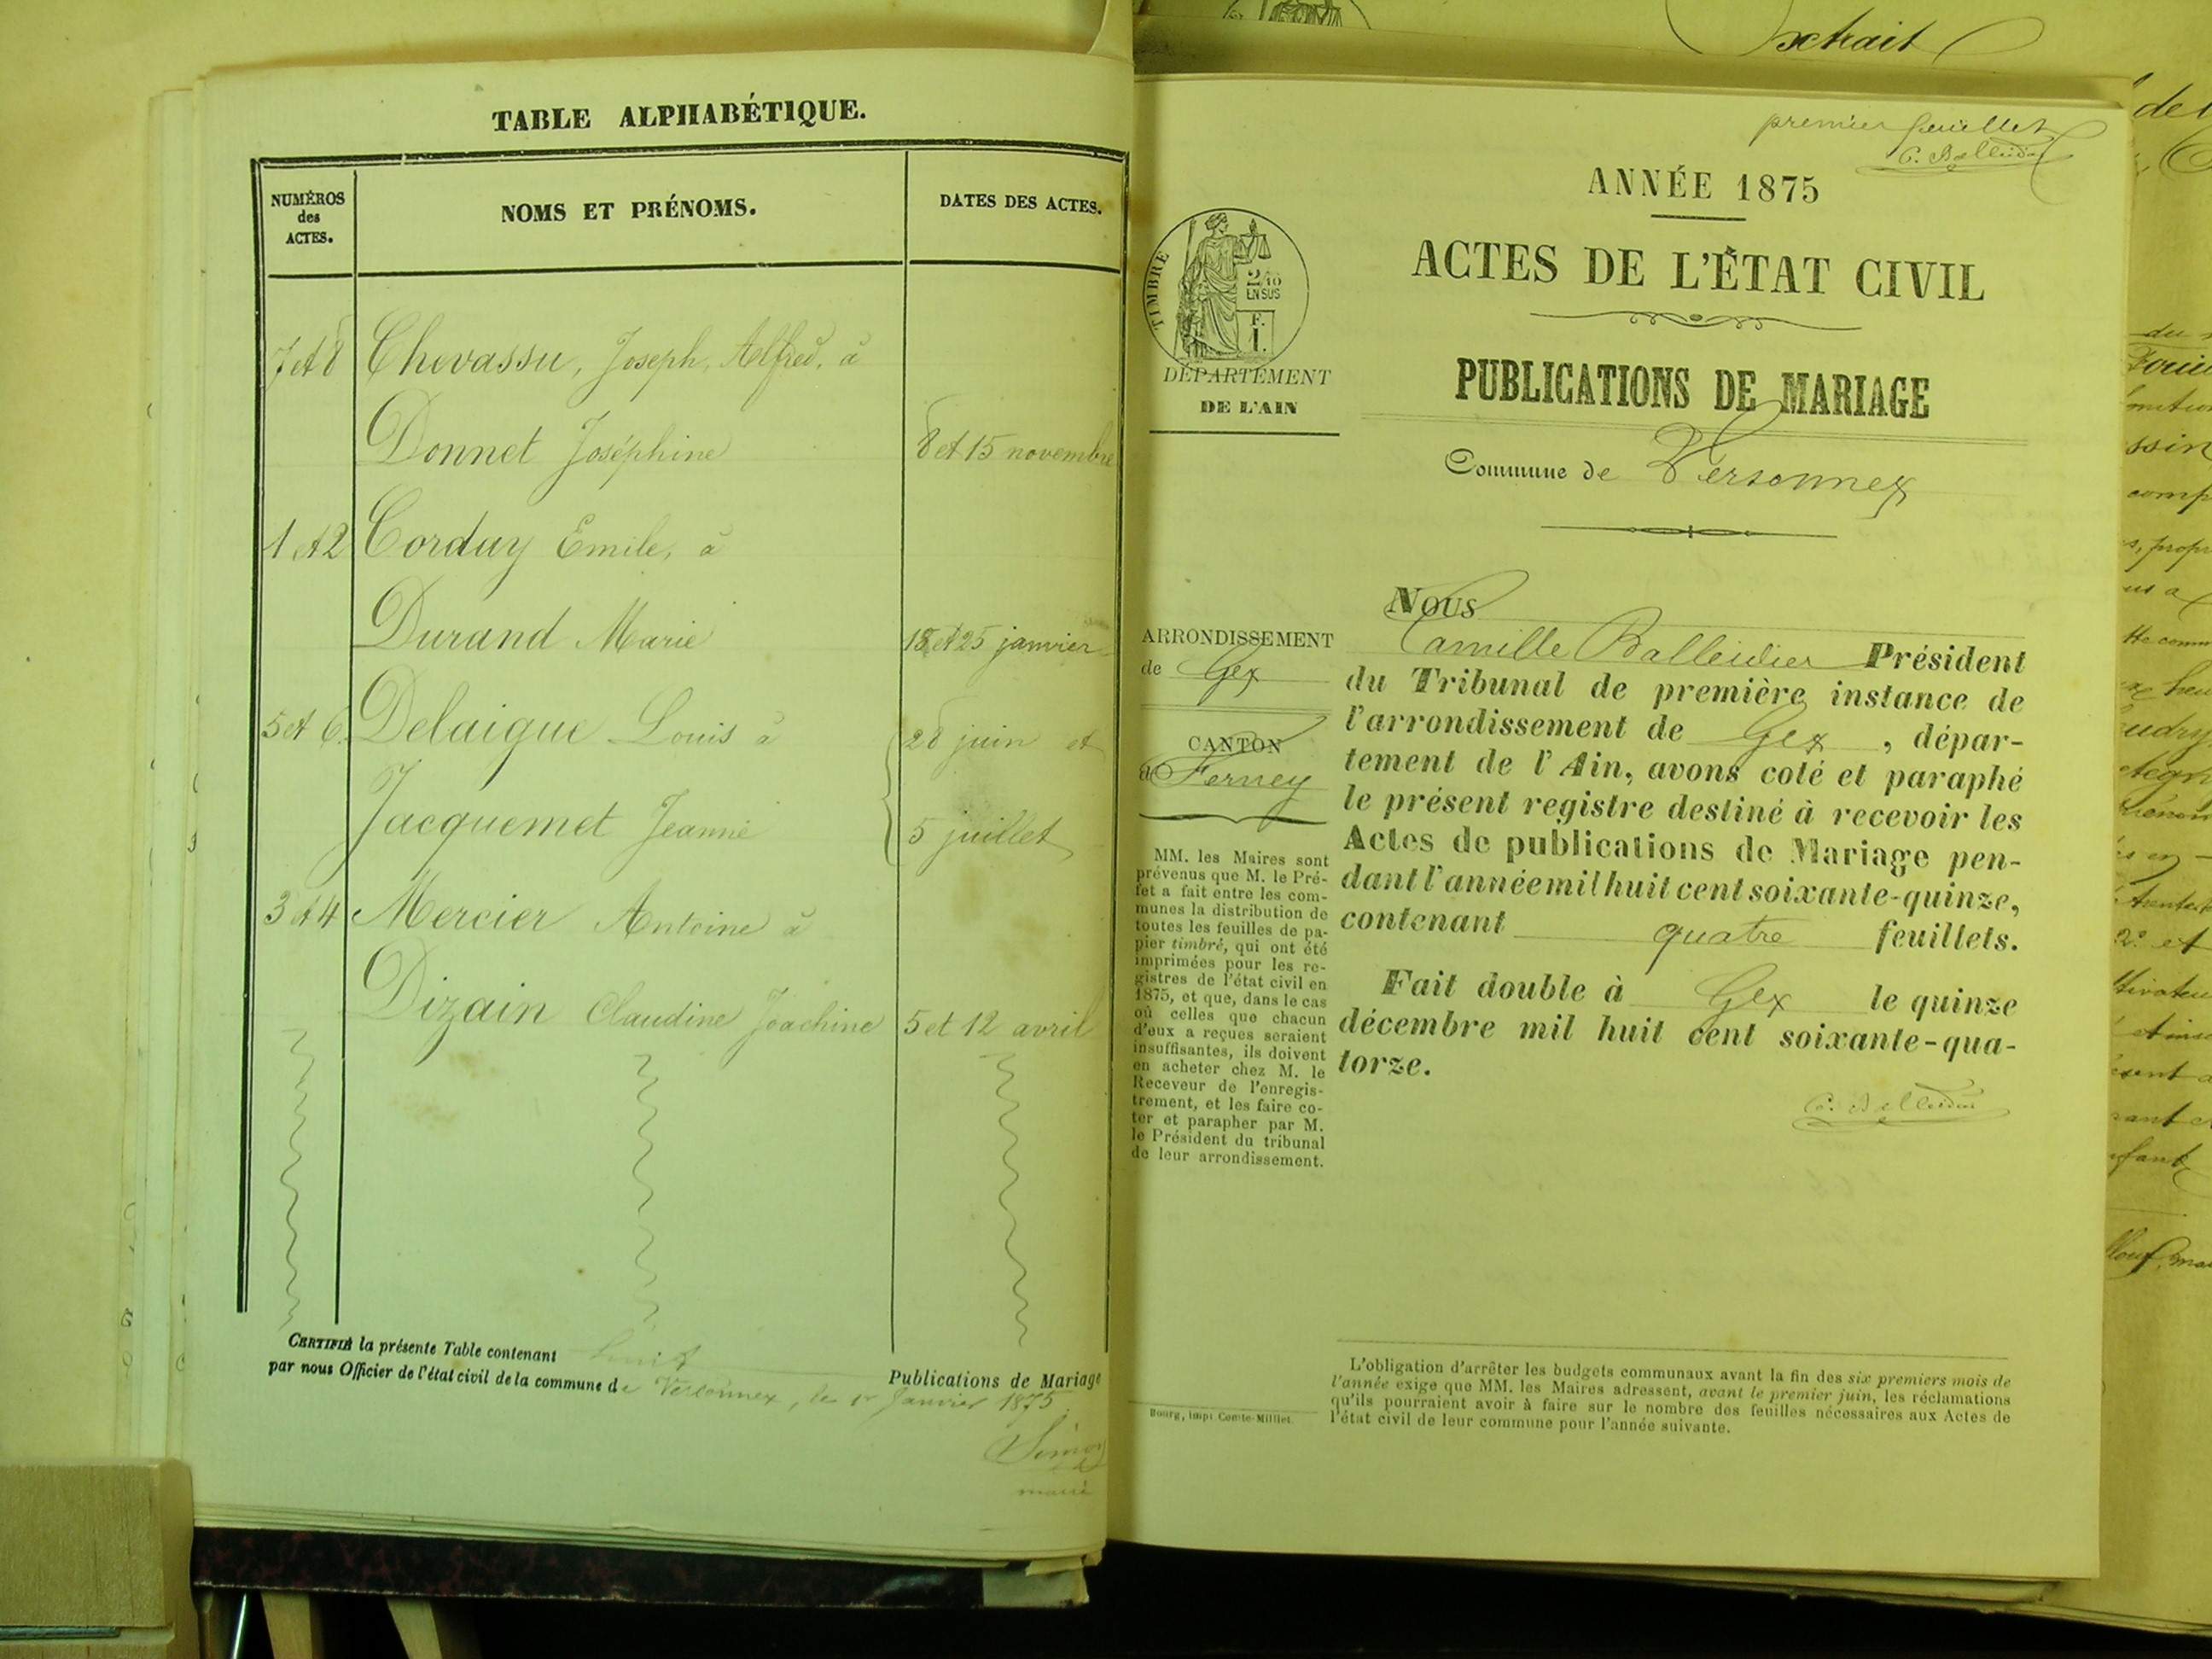 TABLE ALPHABÉTIQUE.
NUMÉROS
des
ACTES.
NOMS ET PRÉNOMS.
DATES DES ACTES.
7 et 8 Chevassu, Joseph, Alfred, à
Donnet Joséphine 8 et 15 novembre
1 et 2 Corday Emile, à
Durand Marie 18 et 25 janvier
5 et 6. Delaigue Louis à 28 juin et
Jacquemet Jeanne 5 juillet
3 et 4 Mercier Antoine à
Dizain Claudine Joachine 5 et 12 avril
CERTIFIÉ la présente Table contenant huit Publications de Mariage
par nous Officier de l'état civil de la commune de Versonnex, le 1er Janvier 1875.
Simon
maire
Extrait
premier feuillet
C. Balleidier
ANNÉE 1875
ACTES DE L'ÉTAT CIVIL
PUBLICATIONS DE MARIAGE
Commune de Versonnex
TIMBRE
2/10
EN SUS
F.
1.
DÉPARTEMENT
DE L'AIN
ARRONDISSEMENT
de Gex
CANTON
de Ferney
MM. les Maires sont
prévenus que M. le Pré-
fet a fait entre les com-
munes la distribution de
toutes les feuilles de pa-
pier timbré, qui ont été
imprimées pour les re-
gistres de l'état civil en
1875, et que, dans le cas
où celles que chacun
d'eux a reçues seraient
insuffisantes, ils doivent
en acheter chez M. le
Receveur de l'enregis-
trement, et les faire co-
ter et parapher par M.
le Président du tribunal
de leur arrondissement.
Nous
Camille Balleidier Président
du Tribunal de première instance de
l'arrondissement de Gex, dépar-
tement de l'Ain, avons coté et paraphé
le présent registre destiné à recevoir les
Actes de publications de Mariage pen-
dant l'année mil huit cent soixante-quinze,
contenant quatre feuillets.
Fait double à Gex le quinze
décembre mil huit cent soixante-qua-
torze.
C. Balleidier
L'obligation d'arrêter les budgets communaux avant la fin des six premiers mois de
l'année exige que MM. les Maires adressent, avant le premier juin, les réclamations
qu'ils pourraient avoir à faire sur le nombre des feuilles nécessaires aux Actes de
l'état civil de leur commune pour l'année suivante.
Bourg, imp. Comte-Milliet